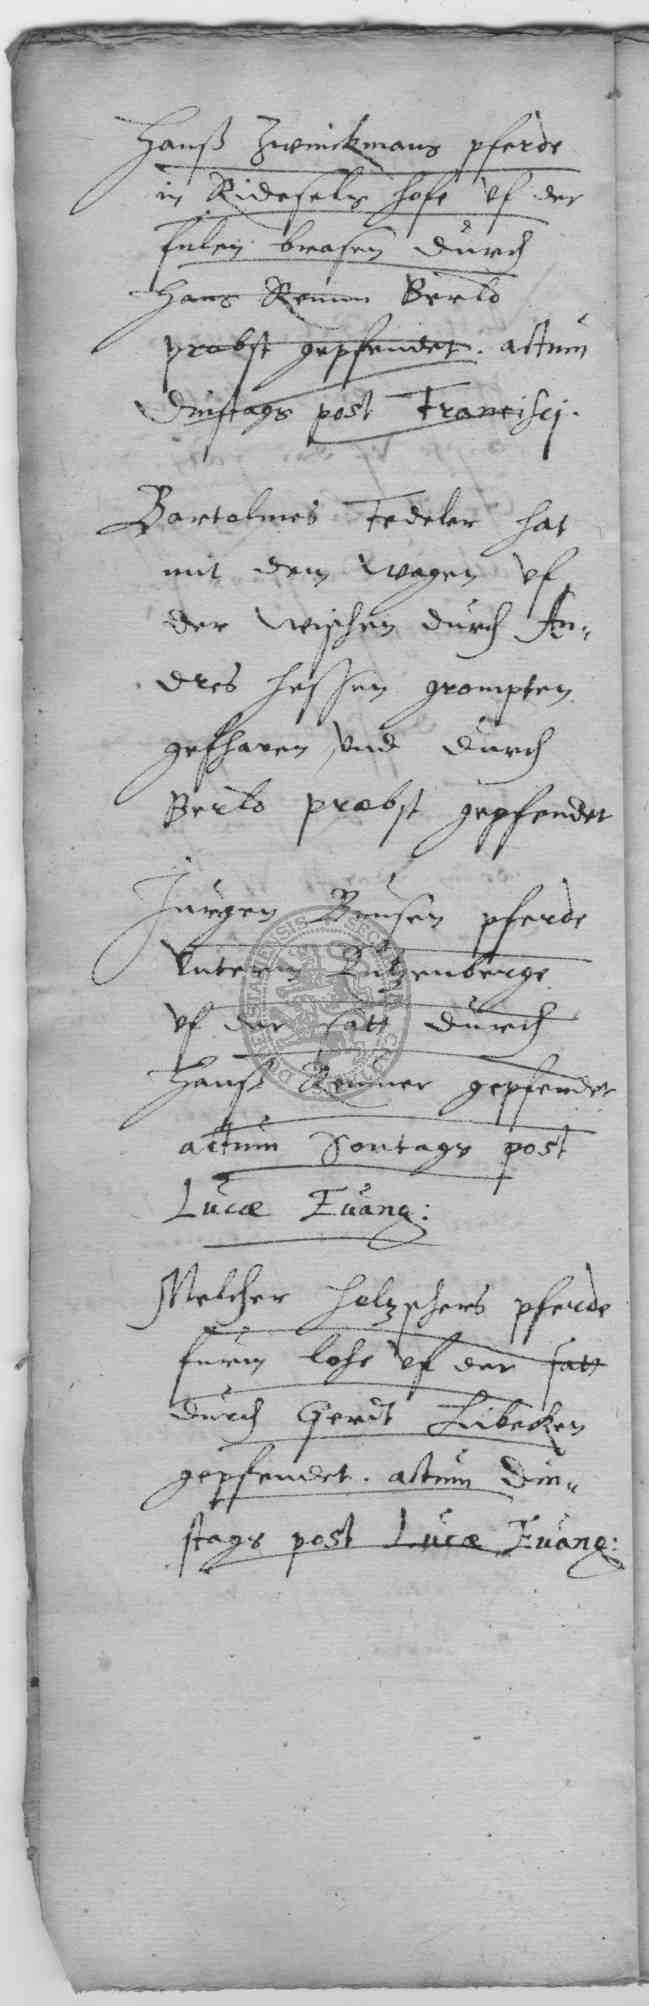 Hanß Zwinckmans pferde
in Ridesels hofe vf der
fulen brasen durch
Hans Remm Berld
probst gepfendet. actum
dinstags post Francisci.
Bartolmes Fedeler hat
mit dem wagen vf
der wischen durch An-
dres hessen grompten
gefharen vnd durch
Berld probst gepfendet
Jurgen Brusen pferde
vnterm Ritzenberge
vf der satt durch
Hanß Remmer gepfendet
actum Sontags post
Lucæ Euang:
Melcher holzschers pferde
furm lohe vf der satt
durch Gerdt Libecken
gepfendet. actum Din-
stags post Lucæ Euang: